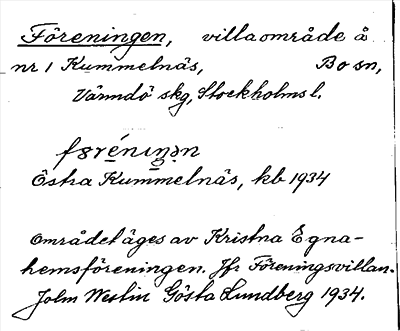 Föreningen, villaområde å
nr 1 Kummelnäs, Bo sn,
Värmdö skg, Stockholms l.
førénıŋən
Östra Kummelnäs, kb 1934
Området äges av Kristna Egna-
hemsföreningen. Jfr Föreningsvillan.
John Westin Gösta Lundberg 1934.